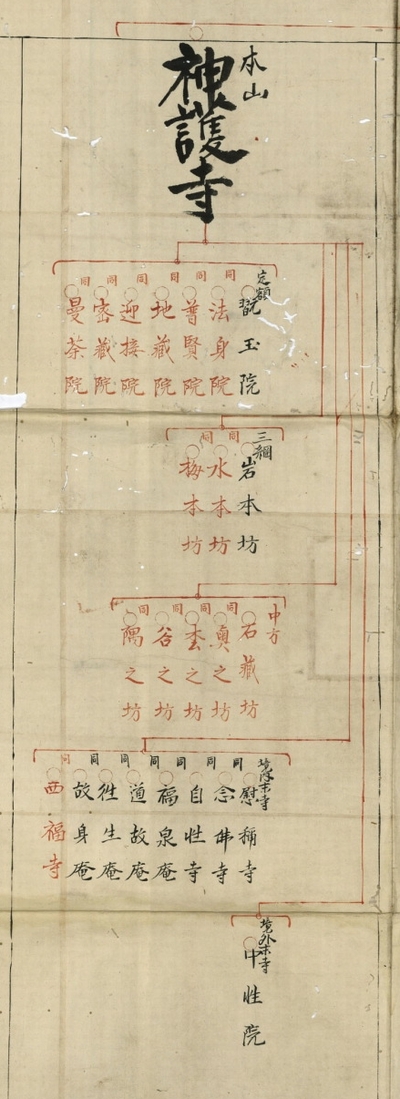 本山
神護寺
定額
翫玉院
同 法身院
同 普賢院
同 地蔵院
同 迎接院
同 密蔵院
同 曼荼院
三綱
岩本坊
同 水本坊
同 梅本坊
中方
石蔵坊
同 奥之坊
同 杢之坊
同 谷之坊
同 隅之坊
境内末寺
慰称寺
同 念佛寺
同 自性寺
同 福泉庵
同 道故庵
同 往生庵
同 故身庵
同 西福寺
境外末寺
中性院